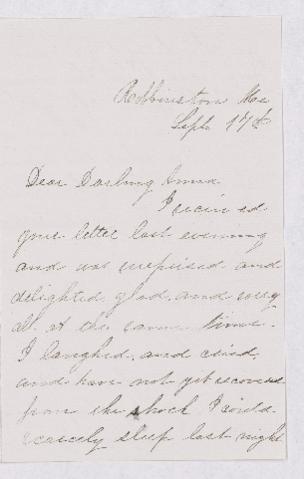 Robbinston Me
Sept 17th
Dear Darling Anna
I received
your letter last evening
and was surprised and
delighted, glad, and sorry
all at the same time.
I laughed, and cried,
and have not yet recovered
from the shock I could
scarcely sleep last night